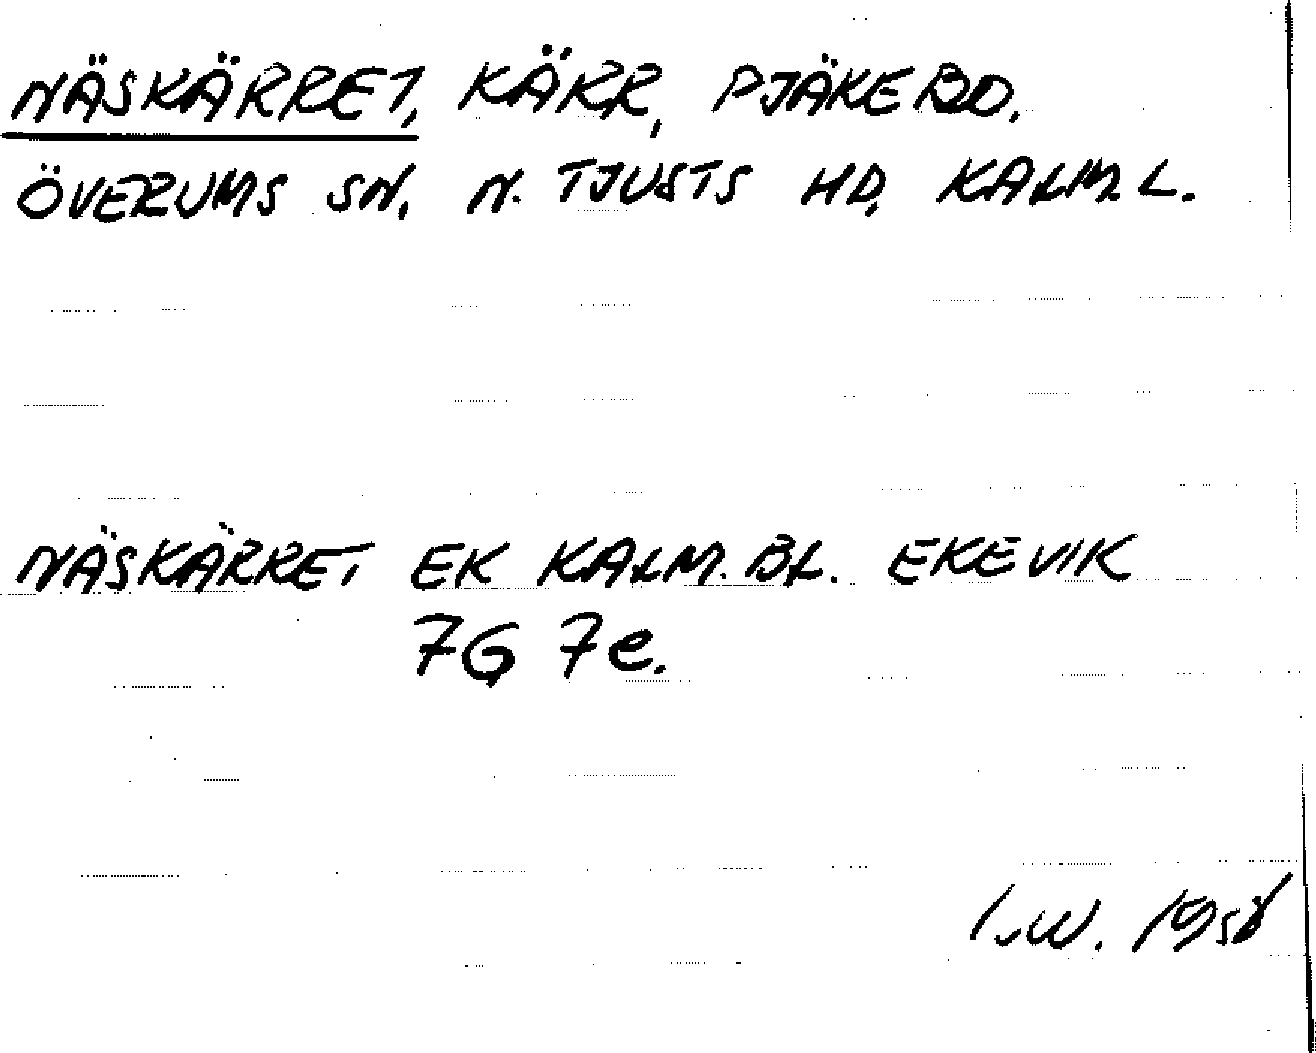 NÄSKÄRRET, KÄRR, PJÄKEBO.
ÖVERUMS SN, N. TJUSTS HD, KALM. L.
NÄSKÄRRET EK KALM. BL. EKEVIK
7G 7e.
I.W. 1958